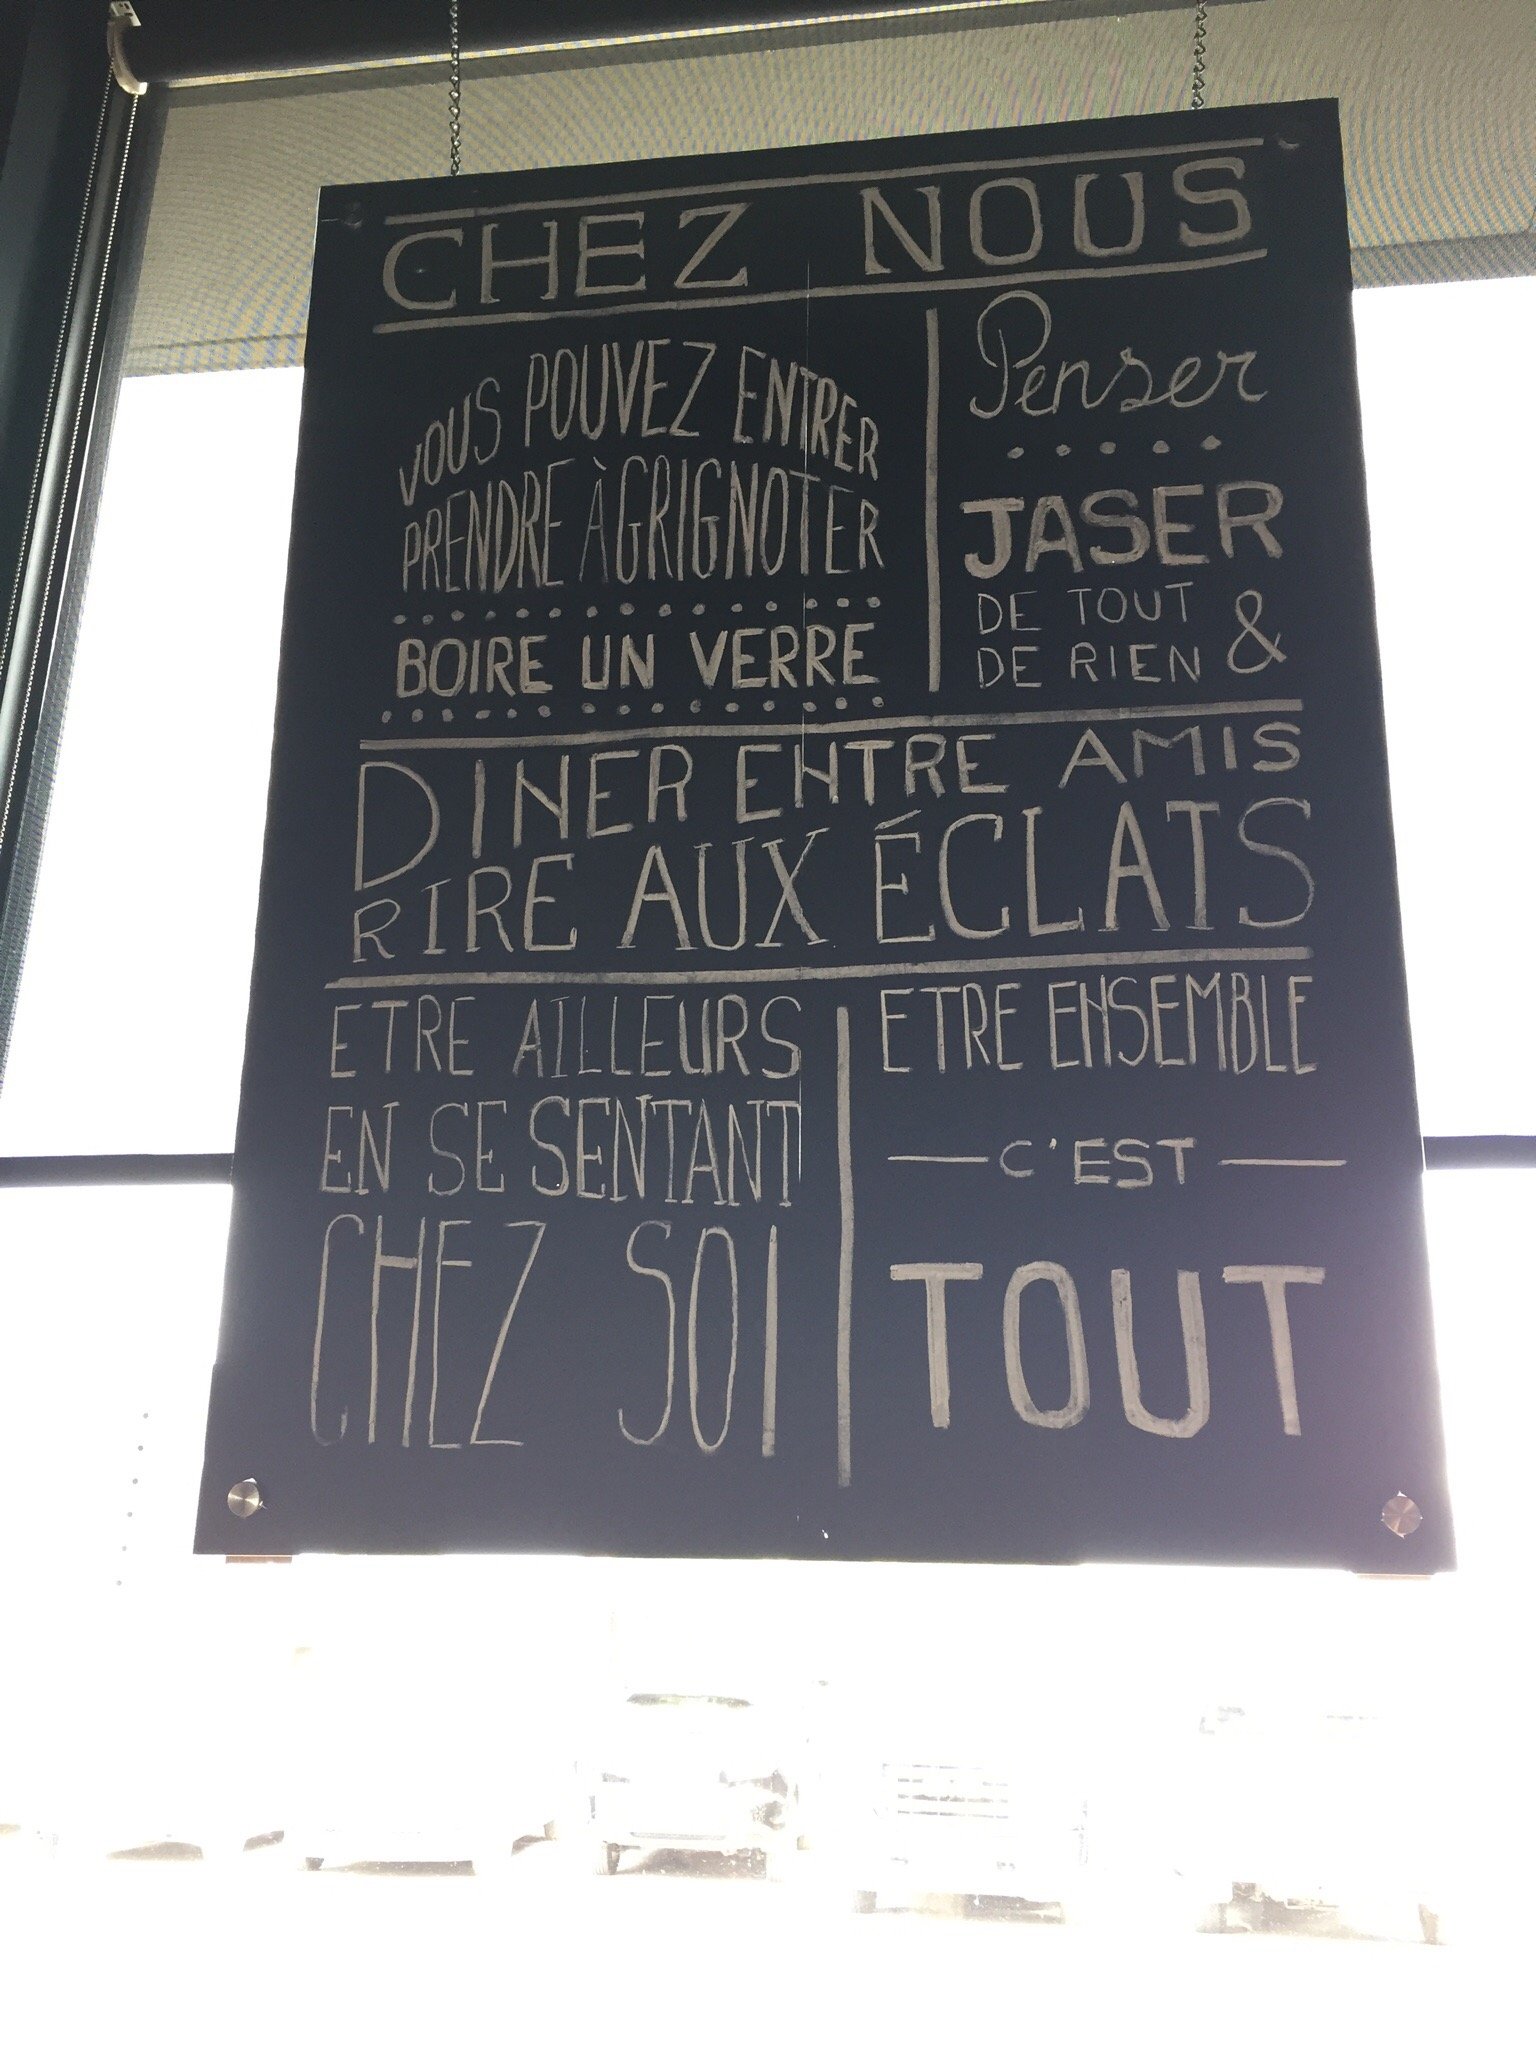 CHEZ NOUS
VOUS POUVEZ ENTRER
PRENDRE À GRIGNOTER
BOIRE UN VERRE
Penser
JASER
DE TOUT &
DE RIEN
DINER ENTRE AMIS
RIRE AUX ÉCLATS
ETRE AILLEURS
EN SE SENTANT
CHEZ SOI
ETRE ENSEMBLE
C'EST
TOUT